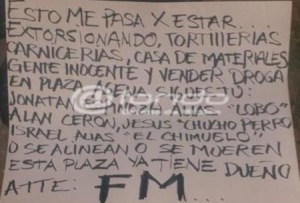 ESTO ME PASA X ESTAR...
EXTORSIONANDO, TORTILLERIAS
CARNICERIAS, CASA DE MATERIALES
GENTE INOCENTE Y VENDER DROGA
EN PLAZA AGENA SIGUES TÚ:
JONATAN EMMANUEL ALIAS "LOBO"
ALAN CERON, JESUS "CHUCHO PERRO
ISRAEL ALIAS "EL CHIMUELO"
O SE ALINEAN O SE MUEREN
ESTA PLAZA YA TIENE DUEÑO
ATTE: FM...